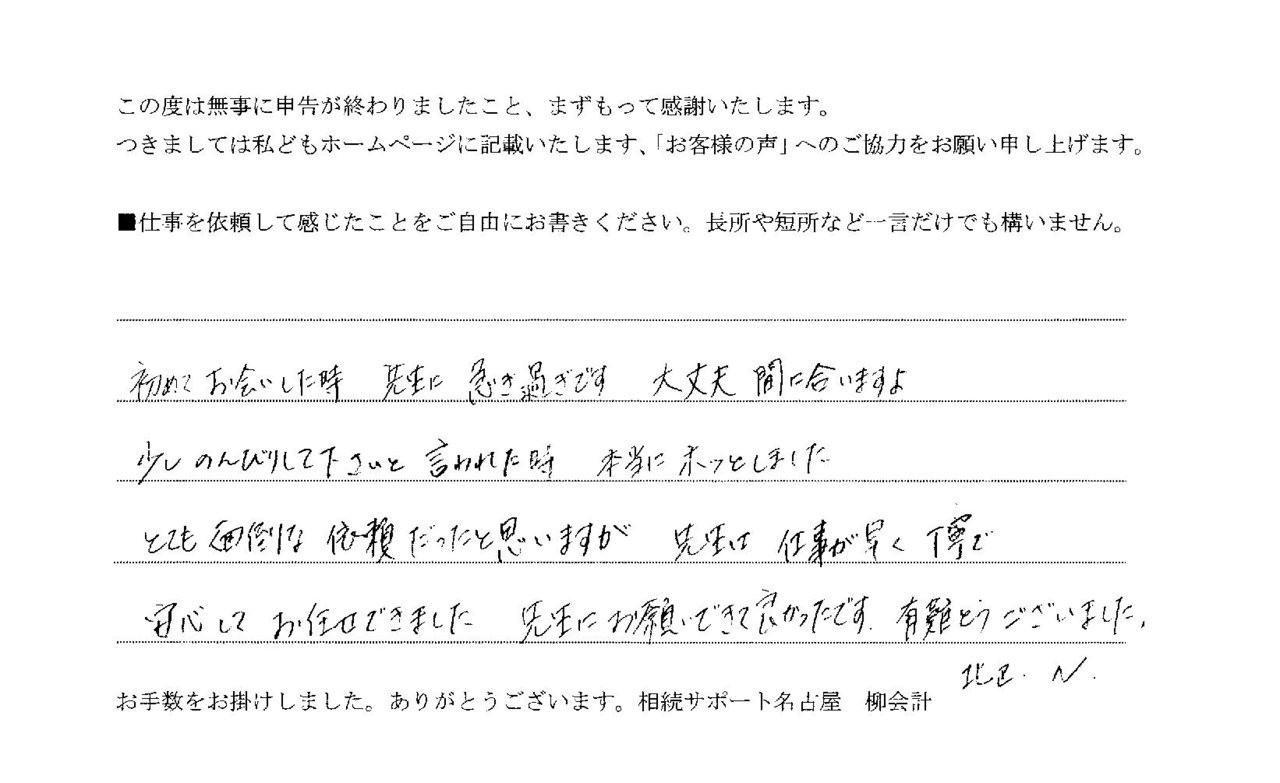 この度は無事に申告が終わりましたこと、まずもって感謝いたします。
つきましては私どもホームページに記載いたします、「お客様の声」へのご協力をお願い申し上げます。
■仕事を依頼して感じたことをご自由にお書きください。長所や短所など一言だけでも構いません。
初めてお会いした時 先生に 急ぎ過ぎです 大丈夫 間に合いますよ
少しのんびりして下さいと 言われた時 本当に ホッとしました
とても 面倒な 依頼だったと思いますが 先生は 仕事が早く 丁寧で
安心して お任せできました 先生にお願いできて良かったです. 有難とうございました.
N.
お手数をお掛けしました。ありがとうございます。相続サポート名古屋 柳会計